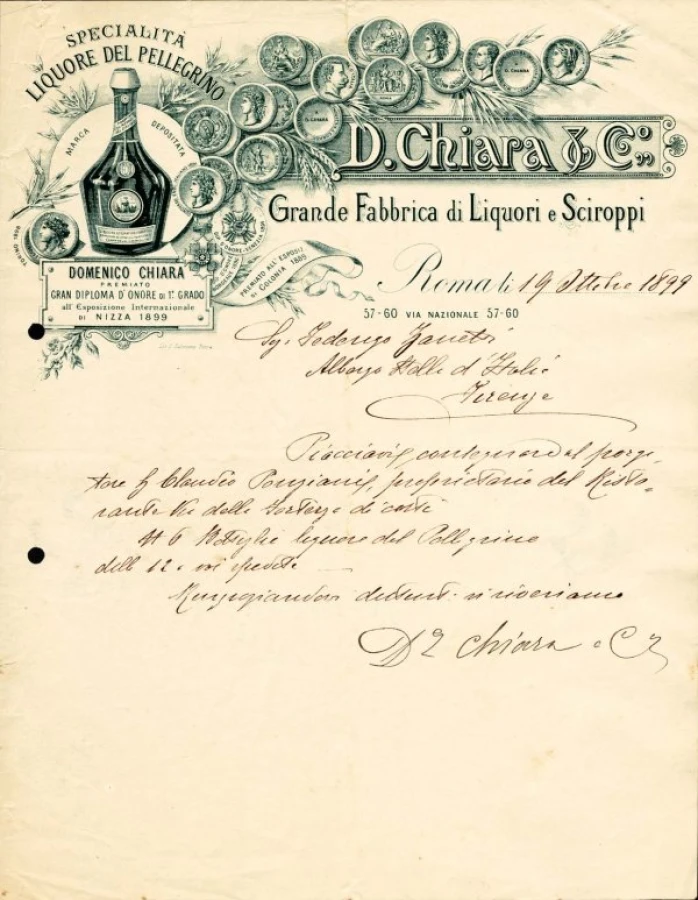 SPECIALITÀ
LIQUORE DEL PELLEGRINO
MARCA DEPOSITATA
D. Chiara & Co.
Grande Fabbrica di Liquori e Sciroppi
DOMENICO CHIARA
PREMIATO
GRAN DIPLOMA D'ONORE DI 1º GRADO
all'Esposizione Internazionale
DI NIZZA 1899
PREMIATO ALL'ESPOSIZ
DI COLONIA 1889
Roma li 19 Ottobre 1899
57-60 VIA NAZIONALE 57-60
Sig. Federigo Zanetti
Albergo Stella d'Italia
Firenze
Piacciavi consegnare al porgi-
tore Claudio proprietario del Risto-
rante delle di
6 Bottiglie liquore del Pellegrino
delle 12 a voi spedite
vi riveriamo
D. Chiara e C.